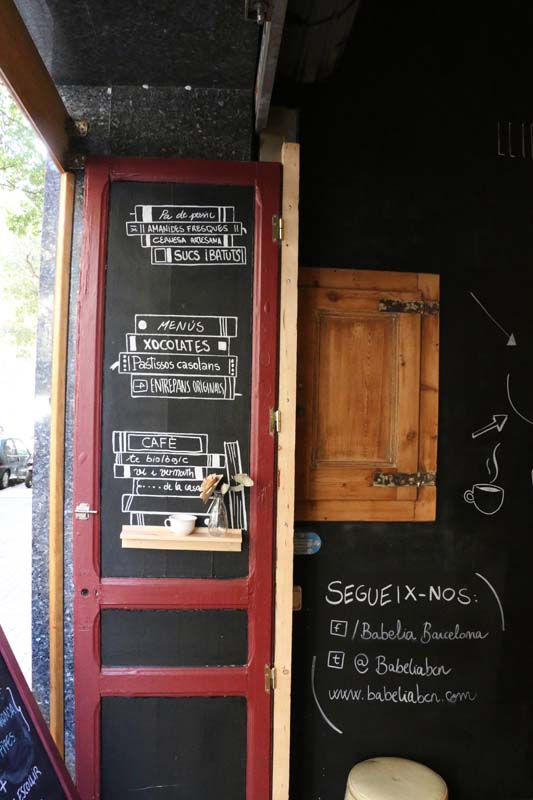 Pa de pessic
AMANIDES FRESQUES
CERVESA ARTESANA
SUCS I BATUTS
MENÚS
XOCOLATES
Pastissos casolans
ENTREPANS ORIGINALS
CAFÈ
te biològic
vi i vermuth
.... de la casa
SEGUEIX-NOS:
f /Babelia Barcelona
t @Babeliabcn
www.babeliabcn.com
ESCOLLIR